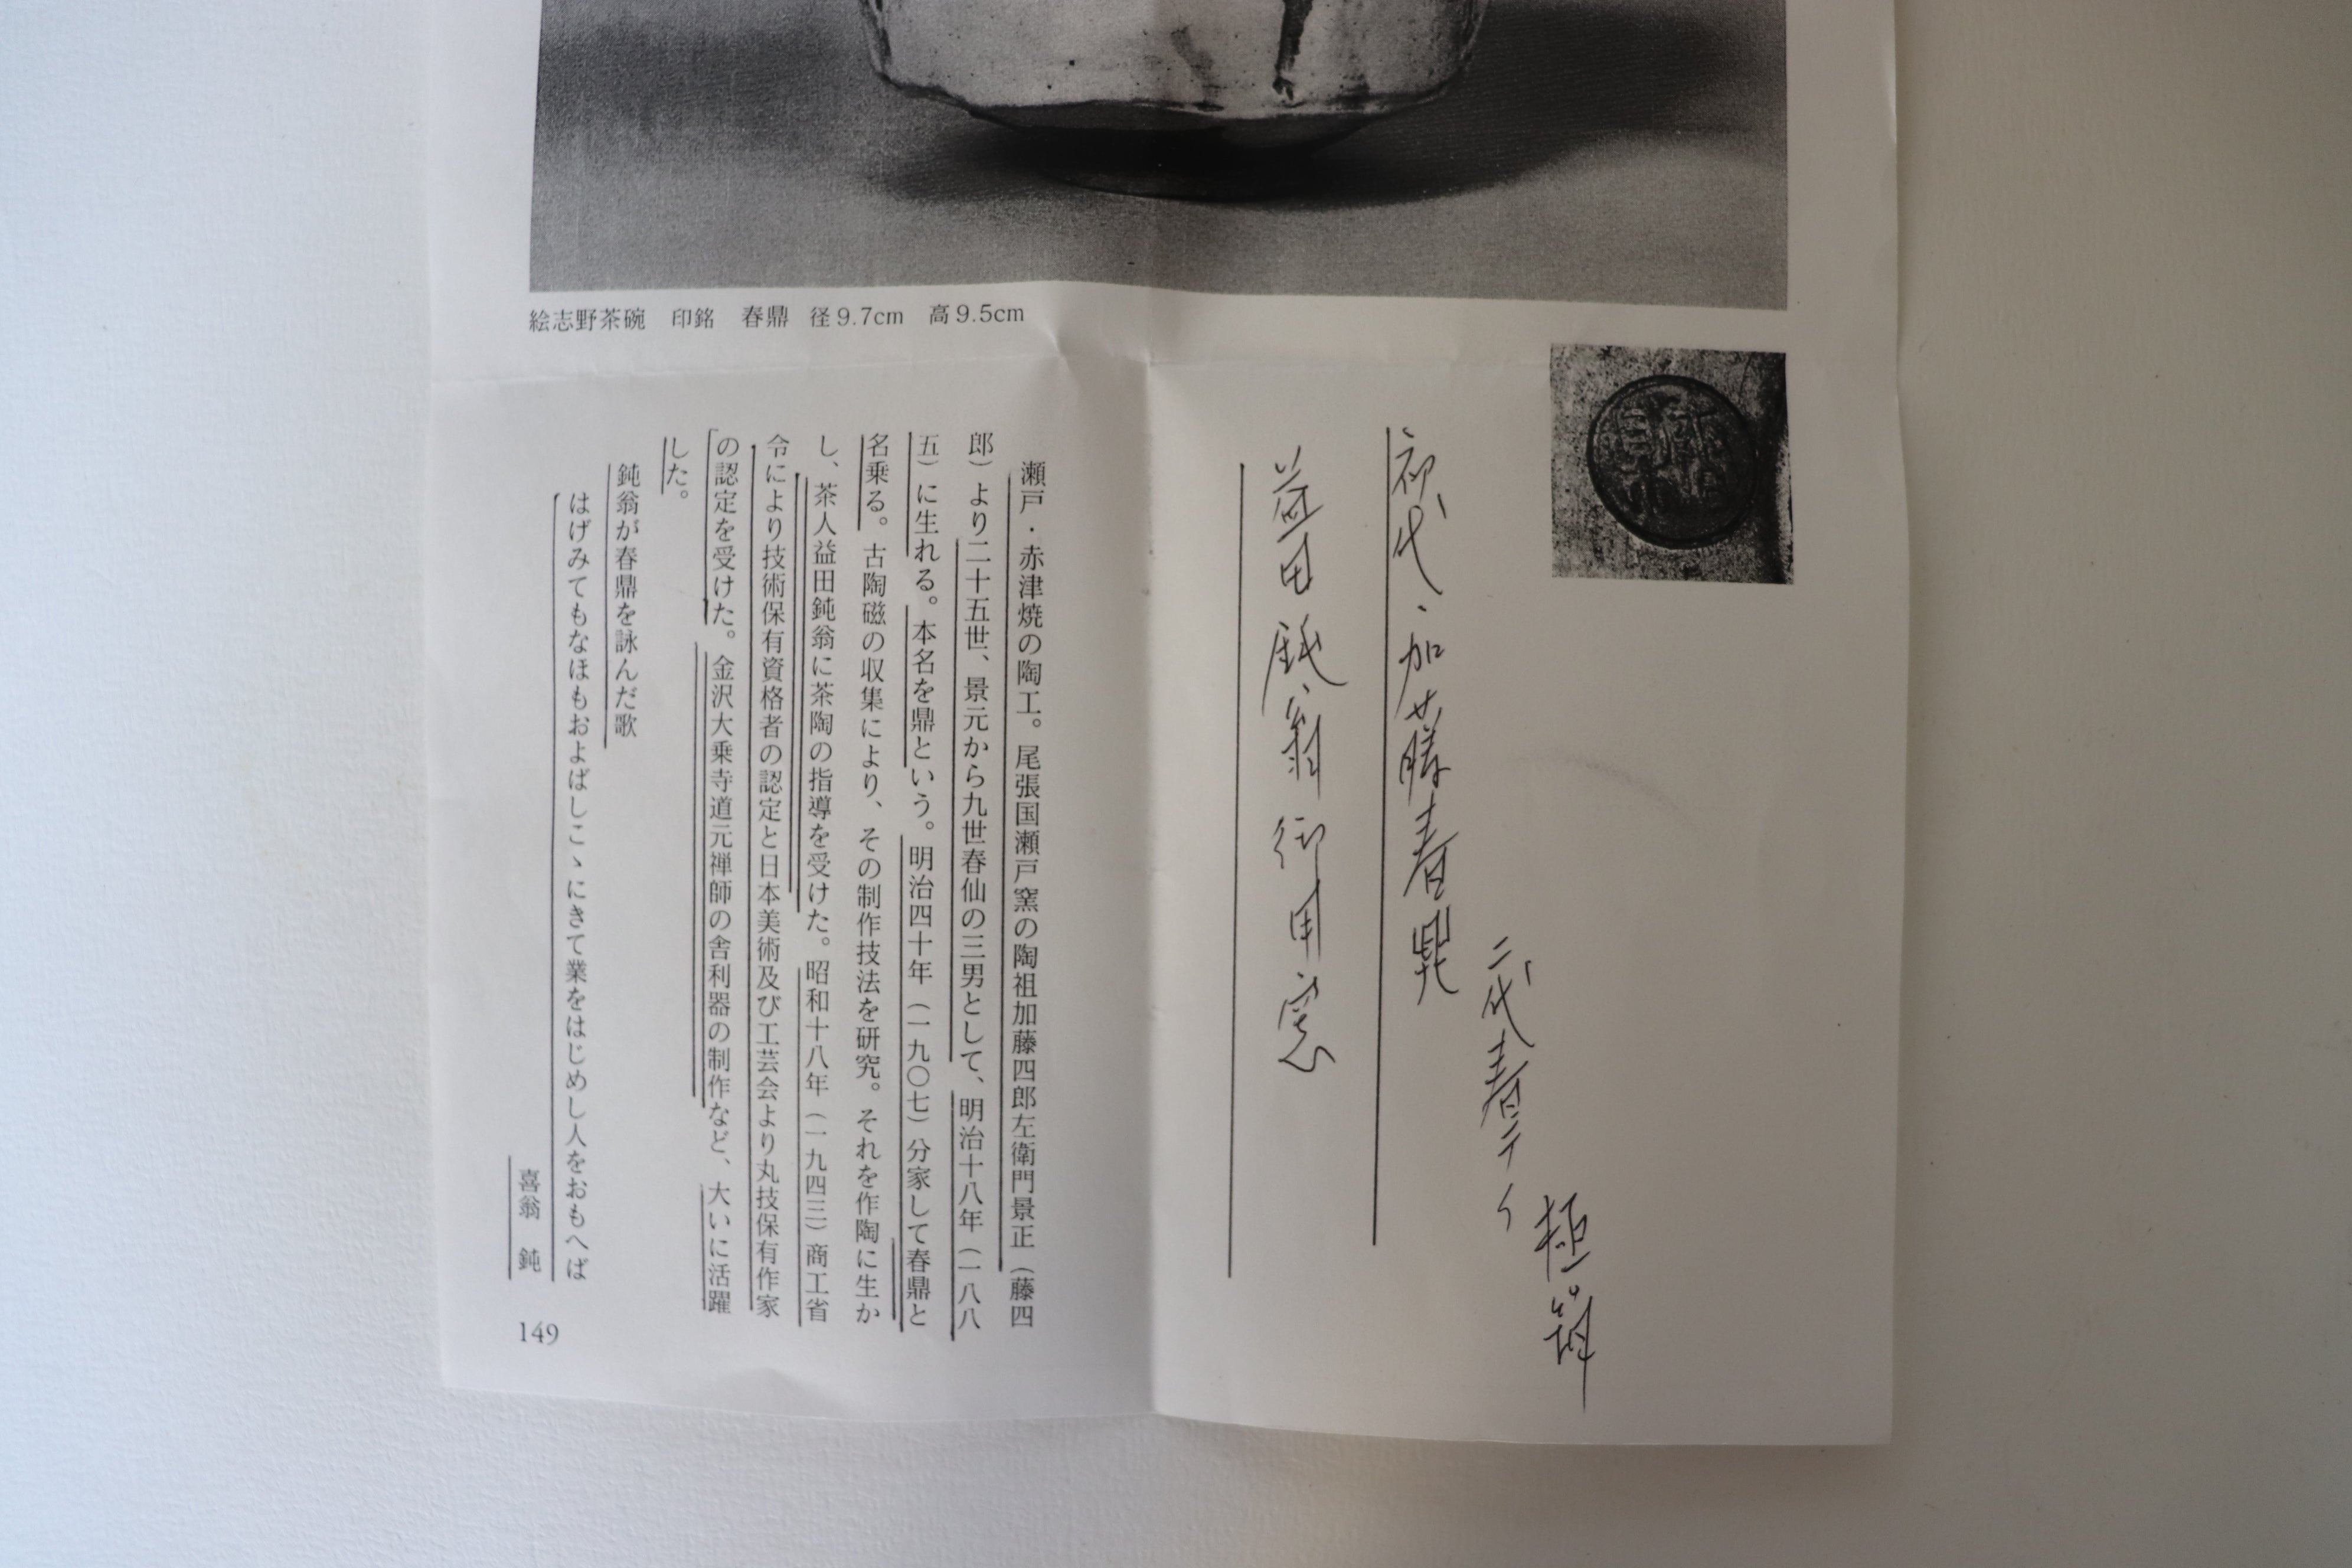 絵志野茶碗　印銘　春鼎　径9.7cm　高9.5cm
二代春
極
初代・加藤春鼎
益田鈍翁御用窯
瀬戸・赤津焼の陶工。尾張国瀬戸窯の陶祖加藤四郎左衛門景正（藤四
郎）より二十五世、景元から九世春仙の三男として、明治十八年（一八八
五）に生れる。本名を鼎という。明治四十年（一九〇七）分家して春鼎と
名乗る。古陶磁の収集により、その制作技法を研究。それを作陶に生か
し、茶人益田鈍翁に茶陶の指導を受けた。昭和十八年（一九四三）商工省
令により技術保有資格者の認定と日本美術及び工芸会より丸技保有作家
の認定を受けた。金沢大乗寺道元禅師の舎利器の制作など、大いに活躍
した。
鈍翁が春鼎を詠んだ歌
はげみてもなほもおよばしこゝにきて業をはじめし人をおもへば
喜翁　鈍
149